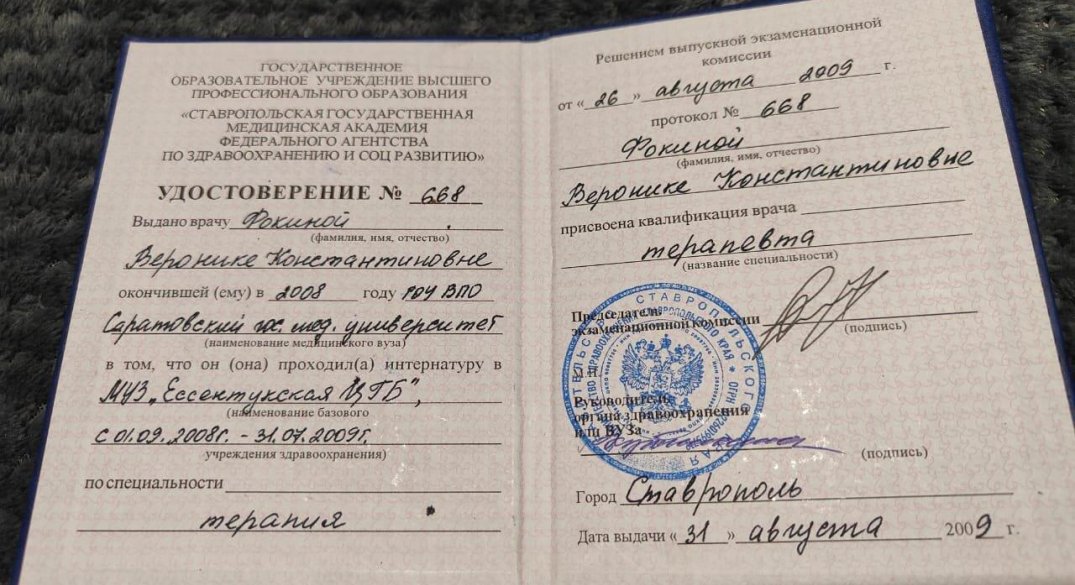 ГОСУДАРСТВЕННОЕ
ОБРАЗОВАТЕЛЬНОЕ УЧРЕЖДЕНИЕ ВЫСШЕГО
ПРОФЕССИОНАЛЬНОГО ОБРАЗОВАНИЯ
«СТАВРОПОЛЬСКАЯ ГОСУДАРСТВЕННАЯ
МЕДИЦИНСКАЯ АКАДЕМИЯ
ФЕДЕРАЛЬНОГО АГЕНТСТВА
ПО ЗДРАВООХРАНЕНИЮ И СОЦ РАЗВИТИЮ»
УДОСТОВЕРЕНИЕ № 668
Выдано врачу Фокиной
(фамилия, имя, отчество)
Веронике Константиновне
окончившей (ему) в 2008 году ГОУ ВПО
Саратовский гос. мед. университет
(наименование медицинского вуза)
в том, что он (она) проходил(а) интернатуру в
МУЗ „Ессентукская ЦГБ",
(наименование базового
с 01.09.2008г. - 31.07.2009г.
учреждения здравоохранения)
по специальности
терапия
Решением выпускной экзаменационной
комиссии
от « 26 » августа 2009 г.
протокол № 668
Фокиной
(фамилия, имя, отчество)
Веронике Константиновне
присвоена квалификация врача
терапевта
(название специальности)
Председатель
экзаменационной комиссии
(подпись)
М.П.
Руководитель
органа здравоохранения
или ВУЗа
(подпись)
Город Ставрополь
Дата выдачи « 31 » августа 2009 г.